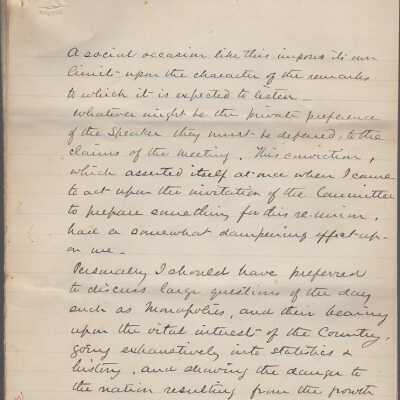 A social occasion like this imposes its own
limit upon the character of the remarks
to which it is expected to listen —
Whatever might be the private preference
of the Speaker they must be deferred, to the
claims of the meeting. This conviction,
which asserted itself at once when I came
to act upon the invitation of the Committee
to prepare something for this re-union,
had a somewhat dampening effect up-
on me —
Personally I should have preferred
to discuss large questions of the day
such as Monopolies, and their bearing
upon the vital interest of the Country,
going exhaustively into statistics &
history, and showing the danger to
the nation resulting from the growth